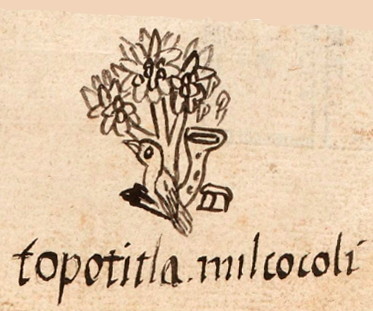 topotitla. milcocoli